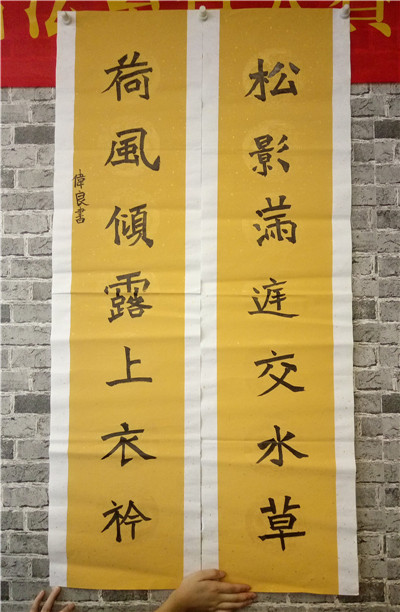 松影满遅交水草
荷風傾露上衣衿
偉良書